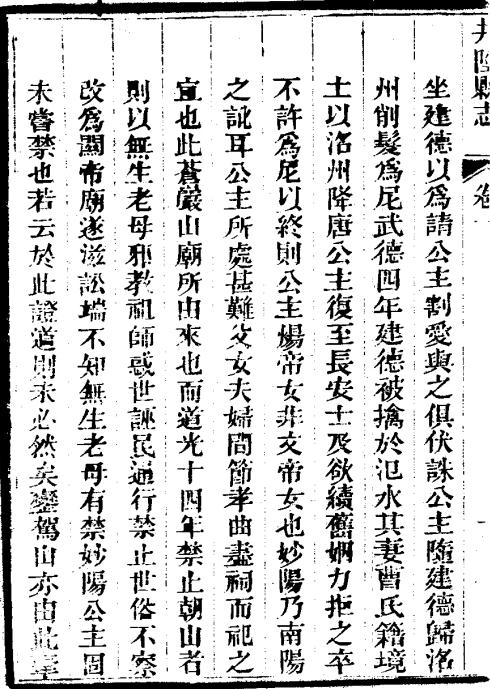 坐建德以爲請公主割愛與之俱伏誅公主隨建德歸洺
州削髮爲尼武德四年建德被擒於氾水其妻曹氏籍境
土以洺州降唐公主復至長安士及欲續舊姻力拒之卒
不許爲尼以終則公主煬帝女非文帝女也妙陽乃南陽
之訛耳公主所處甚難父女夫婦間節孝曲盡祠而祀之
宜也此蒼巖山廟所由來也而道光十四年禁止朝山者
則以無生老母邪教祖師惑世誣民通行禁止世俗不察
改爲關帝廟遂滋訟端不知無生老母有禁妙陽公主固
未嘗禁也若云於此證道則未必然矣鑾駕山亦由此
井陘縣志
卷